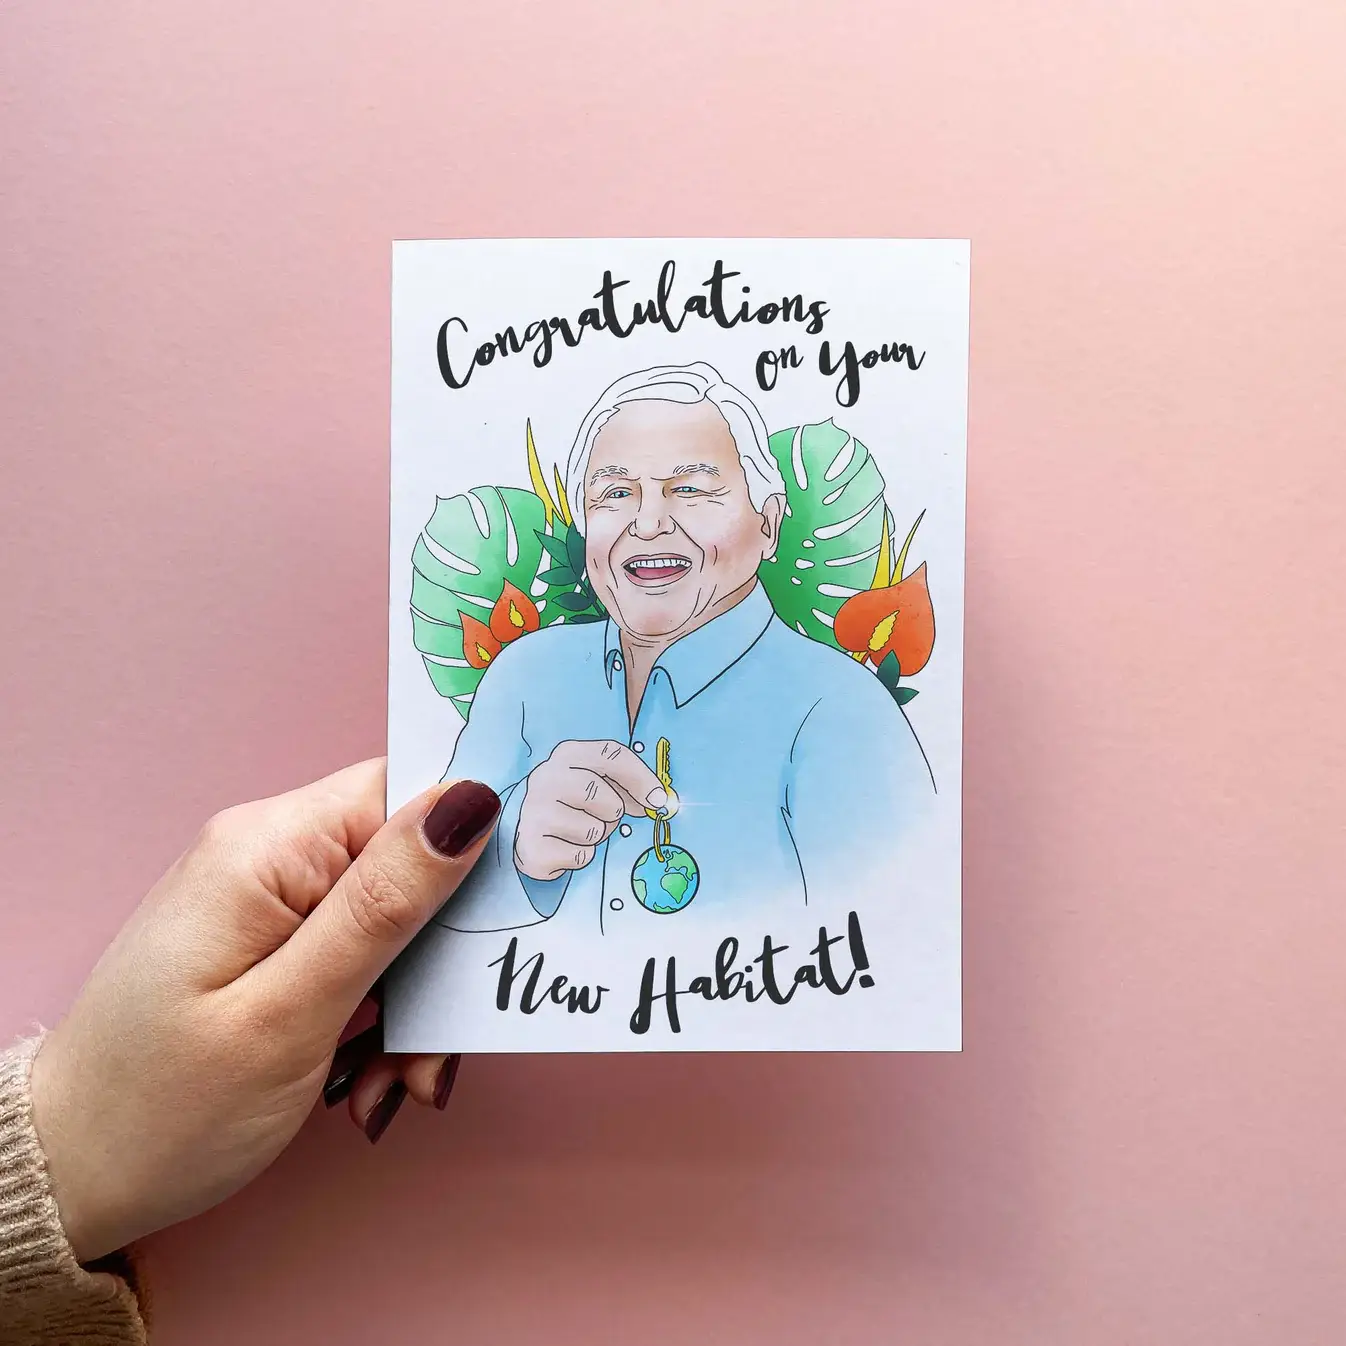 Congratulations
on your
New Habitat!